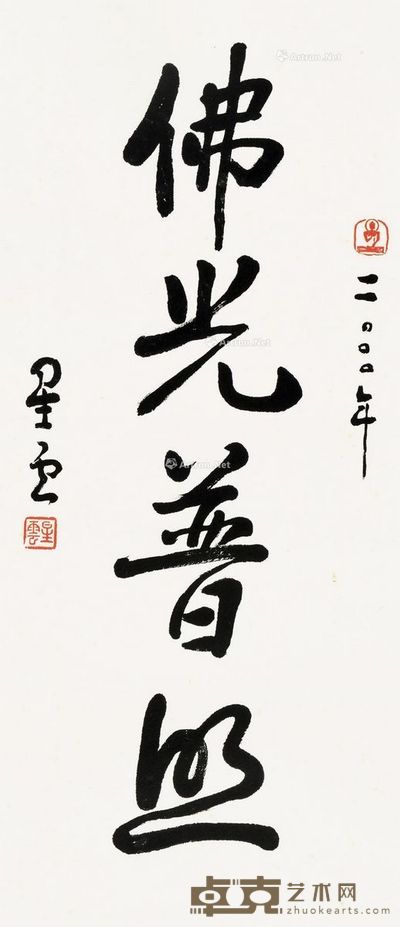 佛光普照
二〇〇〇年
星云
星雲
Artron.Net
Artron.Net
Artron.Net
卓克艺术网
zhuokearts.com